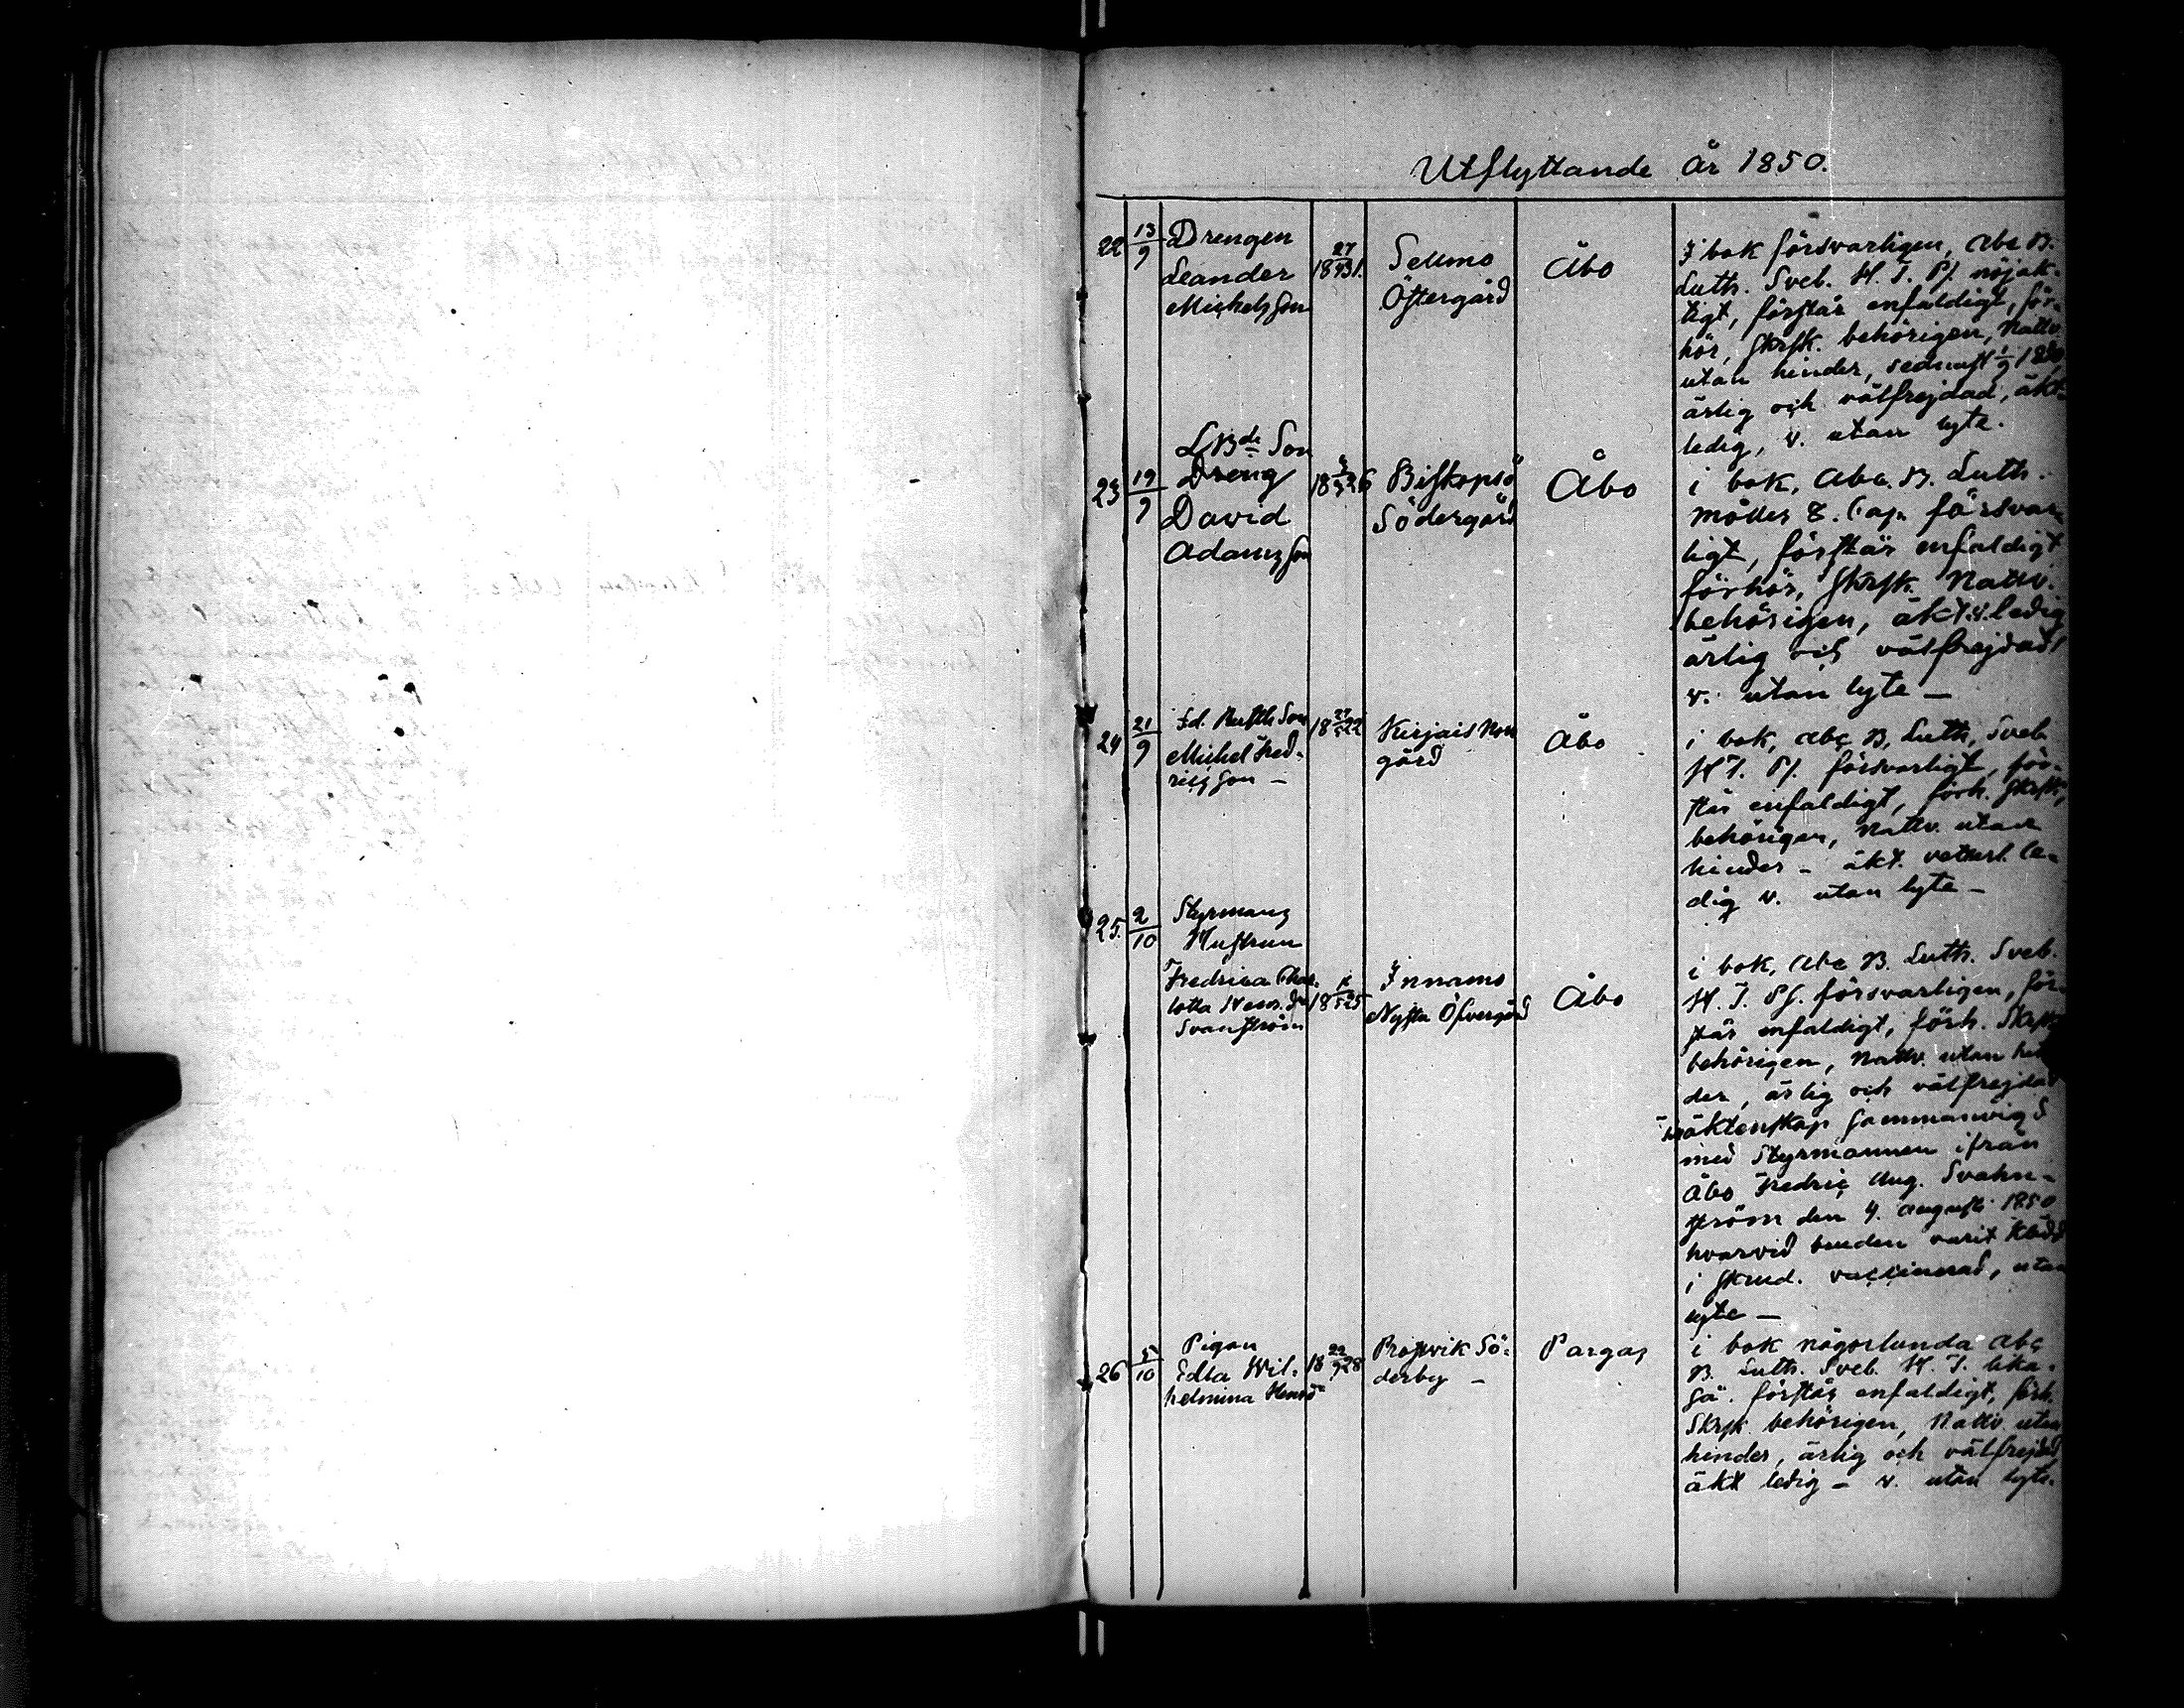 Utflyttande År 1850.
22 13/9 Drengen Leander Michelsson 18 27/9 31. Sellmo Östergård Åbo
I bok försvarligen, Abc B.
Luth. Sveb. H. T. Ps. nöjak-
tigt, förstår enfaldigt, för-
hör, skrsk. behörigen, Nattv.
utan hinder, sednast 1/9 1850
ärlig och välfrejdad, äkt.
ledig, v. utan lyte.
23 19/9 LBde Son Dreng David Adamsson 18 26 Biskopsö Södergård Åbo
i bok, Abc. B. Luth.
möder 8. Cap. försvar-
ligt, förstår enfaldigt
förhör, skrsk. Nattv.
behörigen, äkt. v. ledig
ärlig och välfrejdad,
v. utan lyte –
24 21/9 Ed. Rusth. Son Michel Fred-ricsson – 18 22 Kirjais Norr gård Åbo
i bok, abc B, Luth, Sveb
H T. Ps. försvarligt, för-
står enfaldigt, förh. skrsk,
behörigen, Nattv. utan
hinder – äkt. le-
dig v. utan lyte –
25. 2/10 Styrmans Hustrun Fredrica Char-lotta Svanström 18 25 Innamo Nysta Öfvergård Åbo
i bok, Abc B. Luth. Sveb.
H. T. Ps. försvarligen, för-
står enfaldigt, förh. Skrsk
behörigen, Nattv. utan hin
der, ärlig och välfrejdad
äktenskap sammanvigd
med Styrmannen ifrån
Åbo Fredric Aug. Svahn-
ström den 4. augusti 1850
hvarvid bruden varit klädd
i skrud. vaccinerad, utan
lyte –
26 5/10 Pigan Edla Wil-helmina Henrsdr 18 22/9 28 Prostvik Sö-derby – Pargas
i bok någorlunda abc
B. Luth. Sveb. H. T. lika-
så. förstår enfaldigt, förh.
Skrsk behörigen, Nattv utan
hinder, ärlig och välfrejdad
äkt ledig – v. utan lyte.